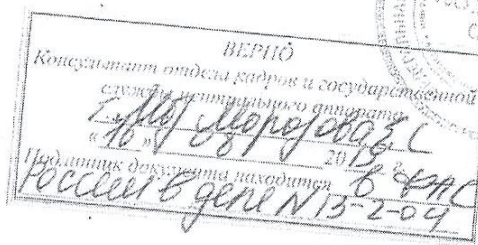 ВЕРНО
Консультант отдела кадров и государственной
службы центрального аппарата
Морозова Е С
« 16 » 20 15 г.
Подлинник документа находится в ФАС
России в деле N 13-2-04